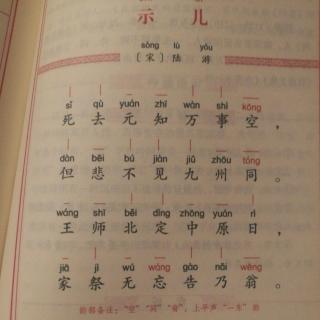 示儿
sòng lù yóu
〔宋〕陆游
sǐ qù yuán zhī wàn shì kōng
死去元知万事空，
dàn bēi bú jiàn jiǔ zhōu tóng
但悲不见九州同。
wáng shī běi dìng zhōng yuán rì
王师北定中原日，
jiā jì wú wàng gào nǎi wēng
家祭无忘告乃翁。
韵部备注：“空”“同”“翁”，上平声“一东”韵